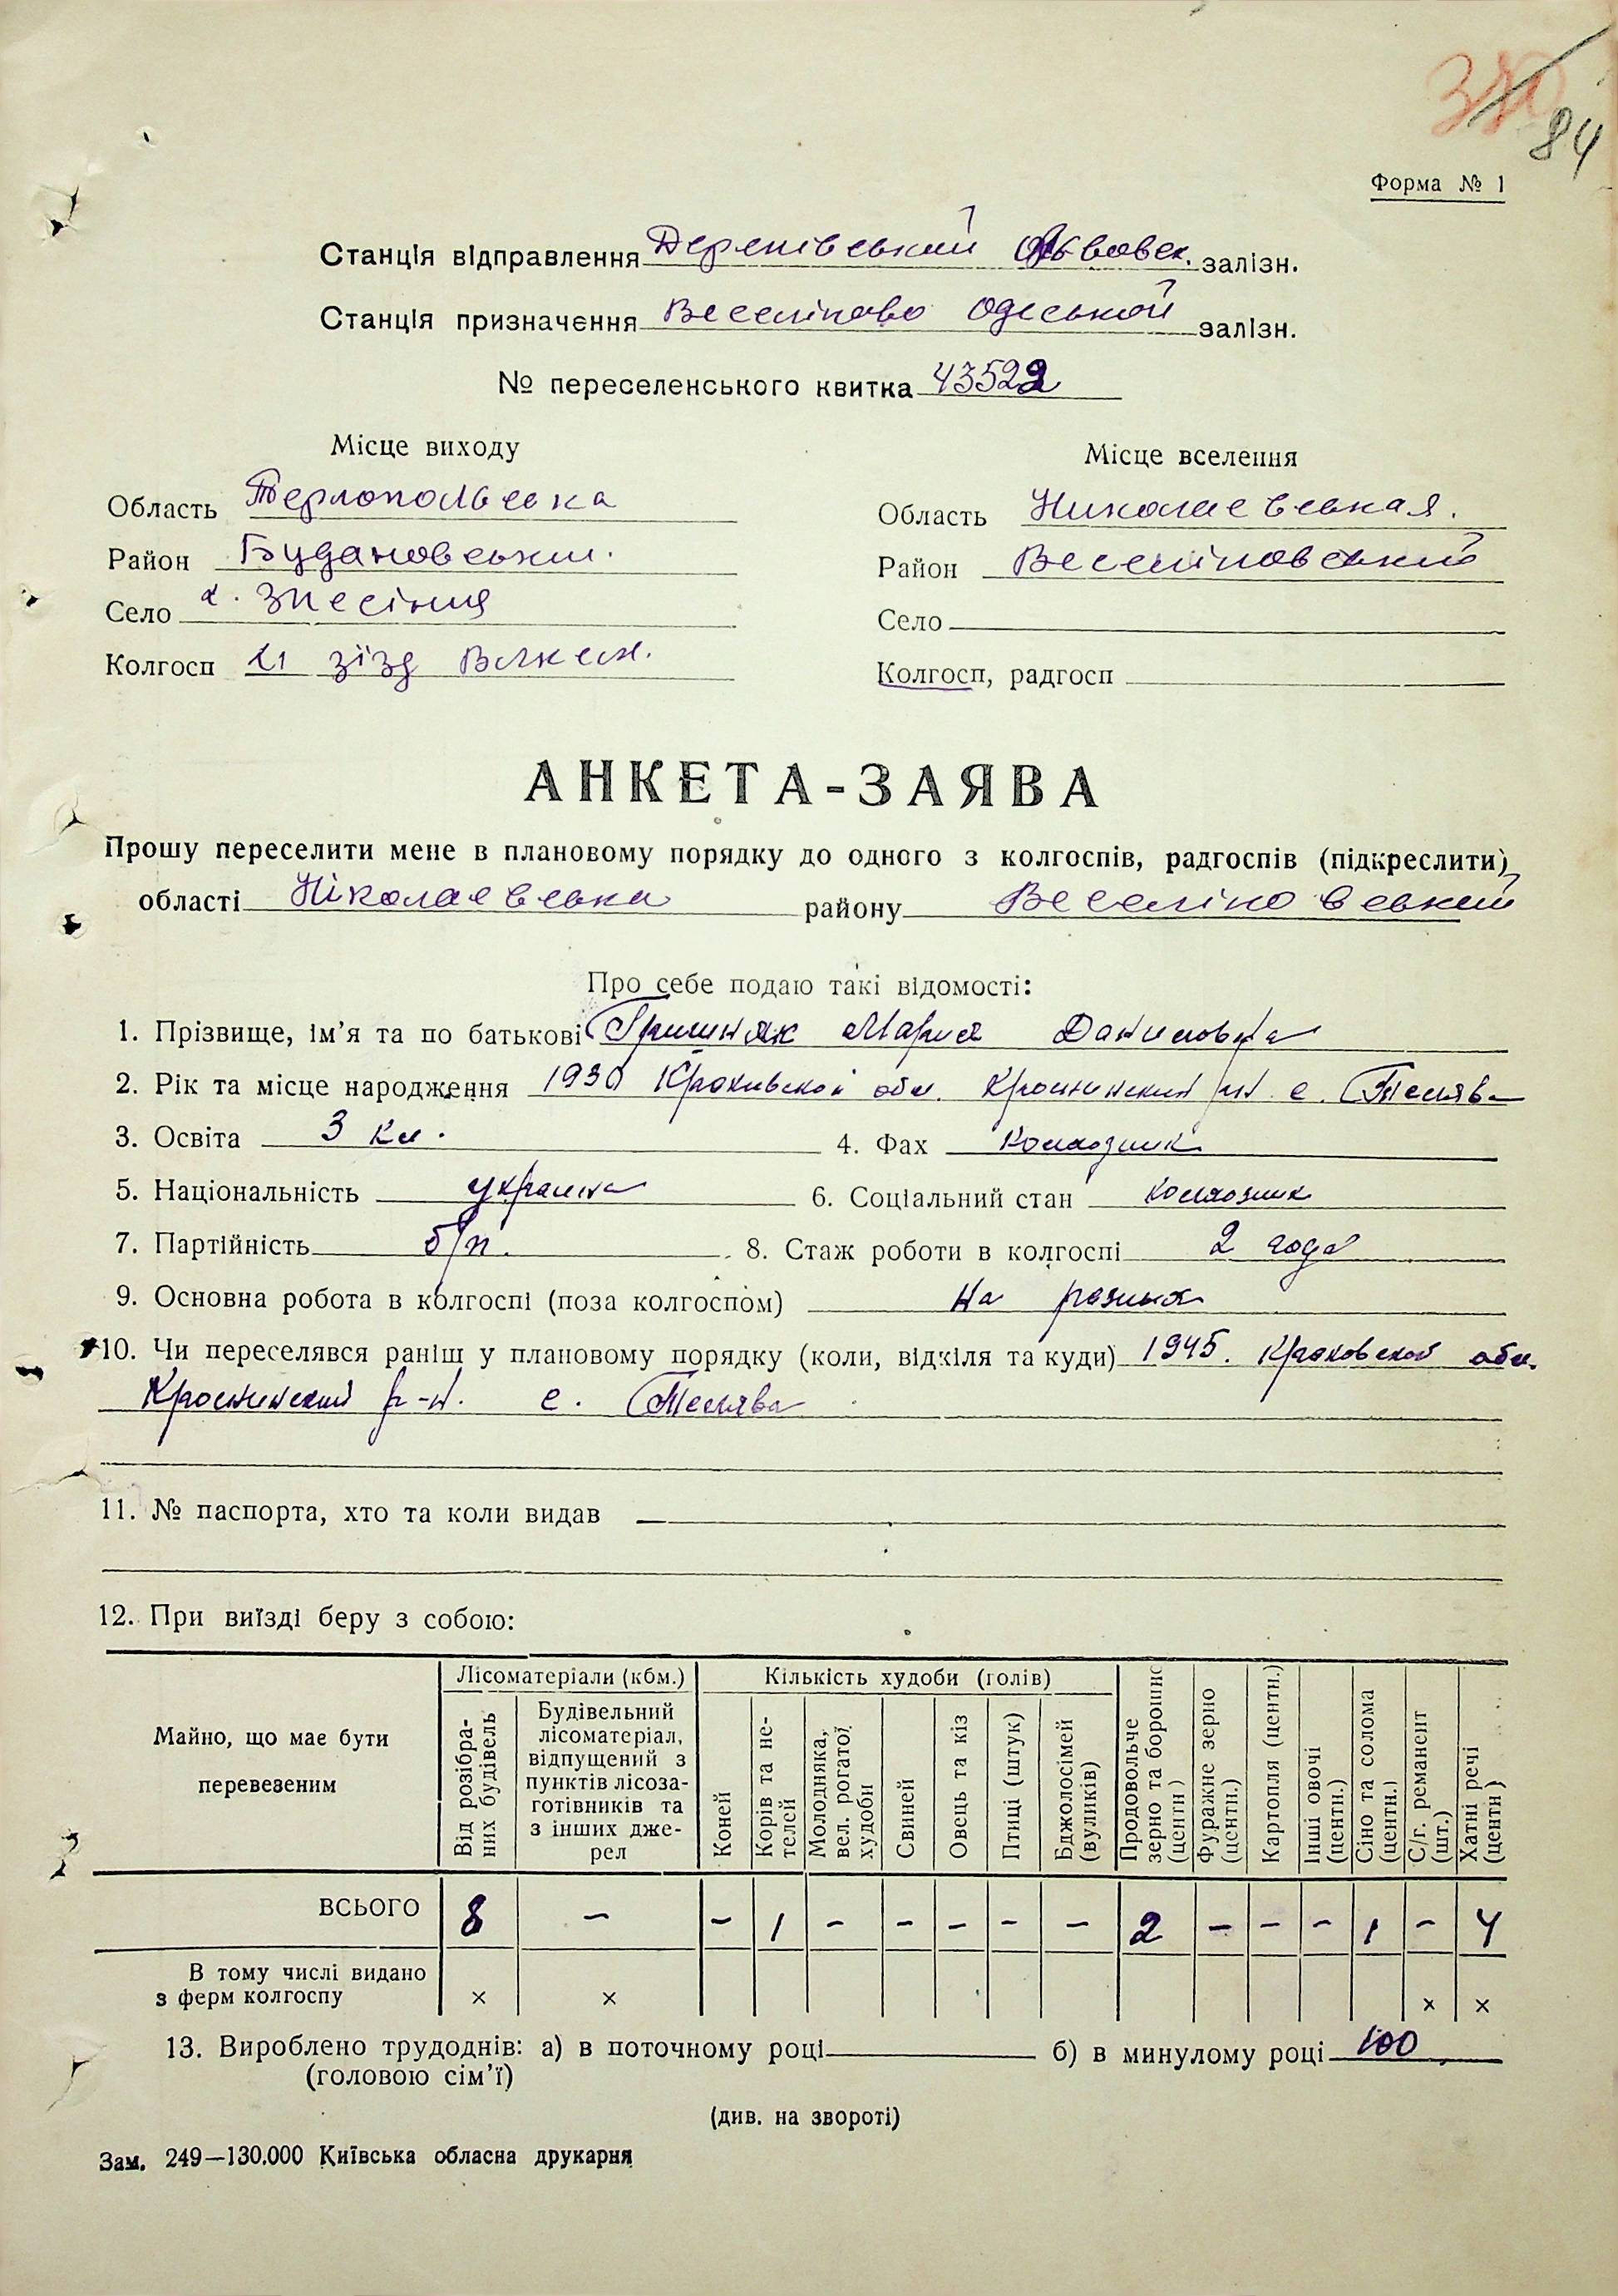 380
84
Форма № 1
Станція відправлення Деренівський Львовск. залізн.
Станція призначення Веселіново Одеськой залізн.
№ переселенського квитка 43522
Місце виходу
Місце вселення
Область Терлопольська
Область Николаевськая.
Район Будановським.
Район Веселіновський
Село с. Знесіння
Село
Колгосп 11 зізд Влксм.
Колгосп, радгосп
АНКЕТА-ЗАЯВА
Прошу переселити мене в плановому порядку до одного з колгоспів, радгоспів (підкреслити)
області Ніколаевська району Веселіновський
Про себе подаю такі відомості:
1. Прізвище, ім’я та по батькові Гришняк Мария Даниловна
2. Рік та місце народження 1930 Краковской обл. Кросненский рн с. Тылява
3. Освіта 3 кл. 4. Фах колхозник
5. Національність украинка 6. Соціальний стан колхозник
7. Партійність б/п. 8. Стаж роботи в колгоспі 2 года
9. Основна робота в колгоспі (поза колгоспом) на разных
10. Чи переселявся раніш у плановому порядку (коли, відкіля та куди) 1945. Краковской обл.
Кросненский р-н. с. Тылява
11. № паспорта, хто та коли видав —
12. При виїзді беру з собою:
Майно, що має бути перевезеним
Лісоматеріали (кбм.)
Кількість худоби (голів)
Від розібраних будівель
Будівельний лісоматеріал, відпущений з пунктів лісозаготівників та з інших джерел
Коней
Корів та нетелей
Молодняка, вел. рогатої худоби
Свиней
Овець та кіз
Птиці (штук)
Бджолосімей (вуликів)
Продовольче зерно та борошно (центн)
Фуражне зерно (центн.)
Картопля (центн.)
Інші овочі (центн.)
Сіно та солома (центн.)
С/г. реманент (шт.)
Хатні речі (центн)
ВСЬОГО 8 – – 1 – – – – – 2 – – – 1 – 4
В тому числі видано
з ферм колгоспу × × × ×
13. Вироблено трудоднів: а) в поточному році б) в минулому році 100
(головою сім’ї)
(див. на звороті)
Зам. 249—130.000 Київська обласна друкарня